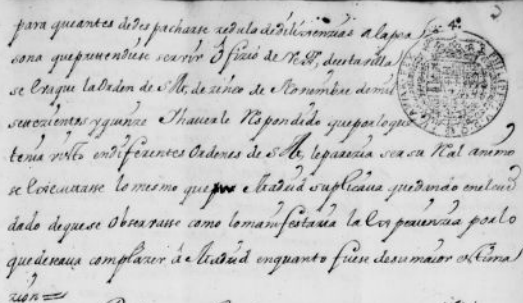 para que antes de despacharse zedula de dilixenzias a la per
sona que pretendiese servir Ofizio de Rexr, de esta villa
se traque la Orden de S. M, de zinco de Noviembre de mil
seiscientos y quinze Y haverle Respondido que por lo que
tenia visto en diferentes Ordenes de S M, le parezia ser su Real animo
se executasse lo mismo que Madrid suplicava quedando en el cui
dado de que se Observasse como lo manifestaria la Experienzia por lo
que deseava complazer á Madrid en quanto fuese de su maior estima
zion=